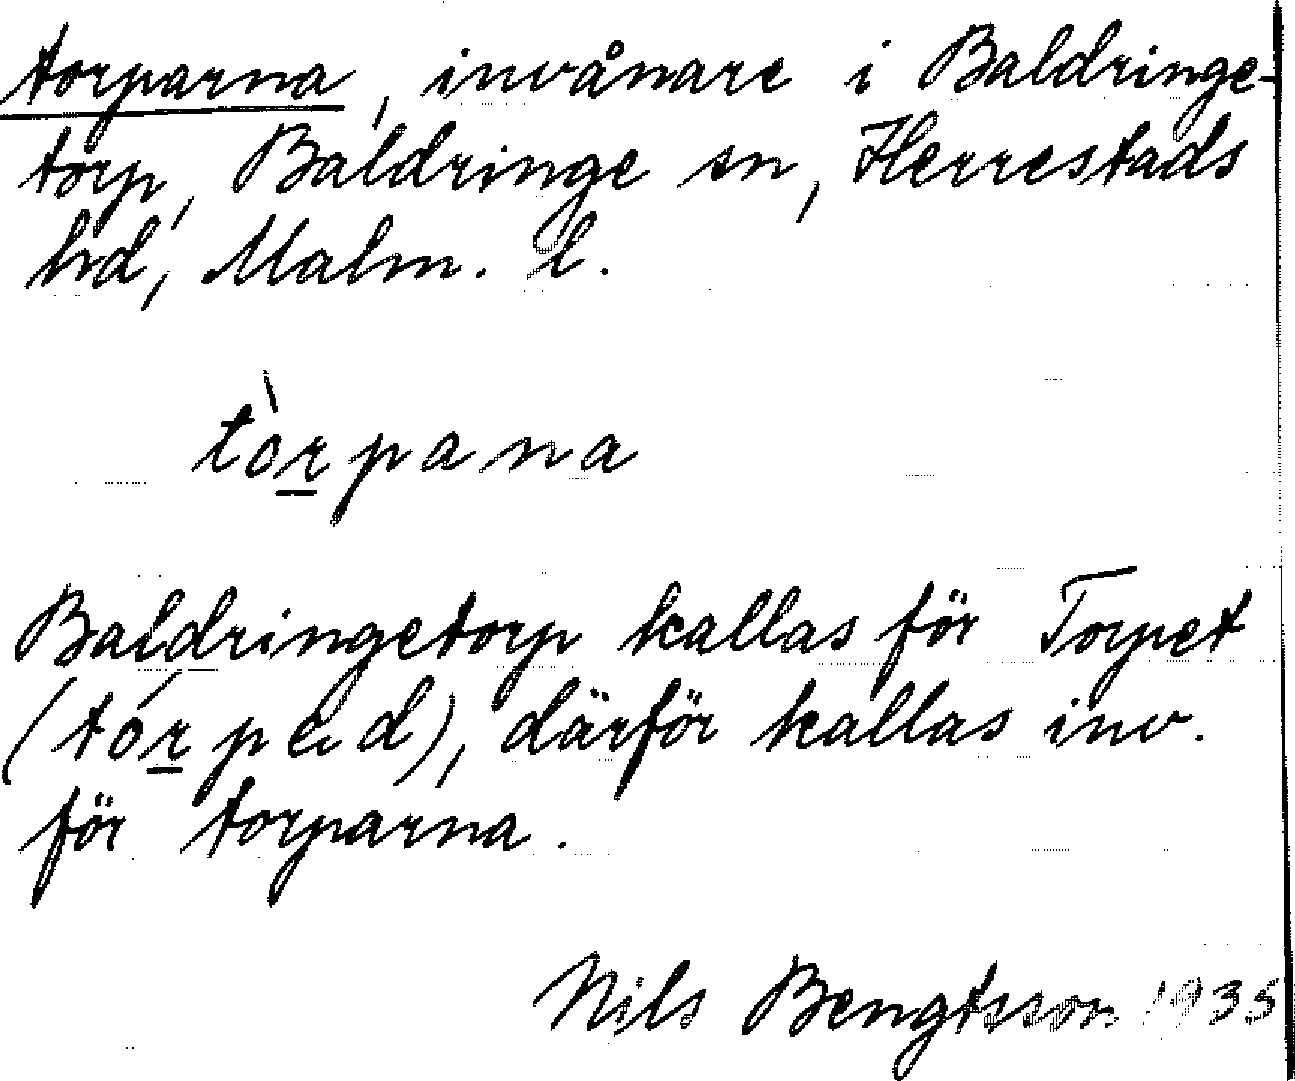 torparna, invånare i Baldringe-
torp, Baldringe sn, Herrestads
hd, Malm. l.
tòr̲pana
Baldringetorp kallas för Torpet
(tór̲pəd), därför kallas inv.
för torparna.
Nils Bengtsson 1935